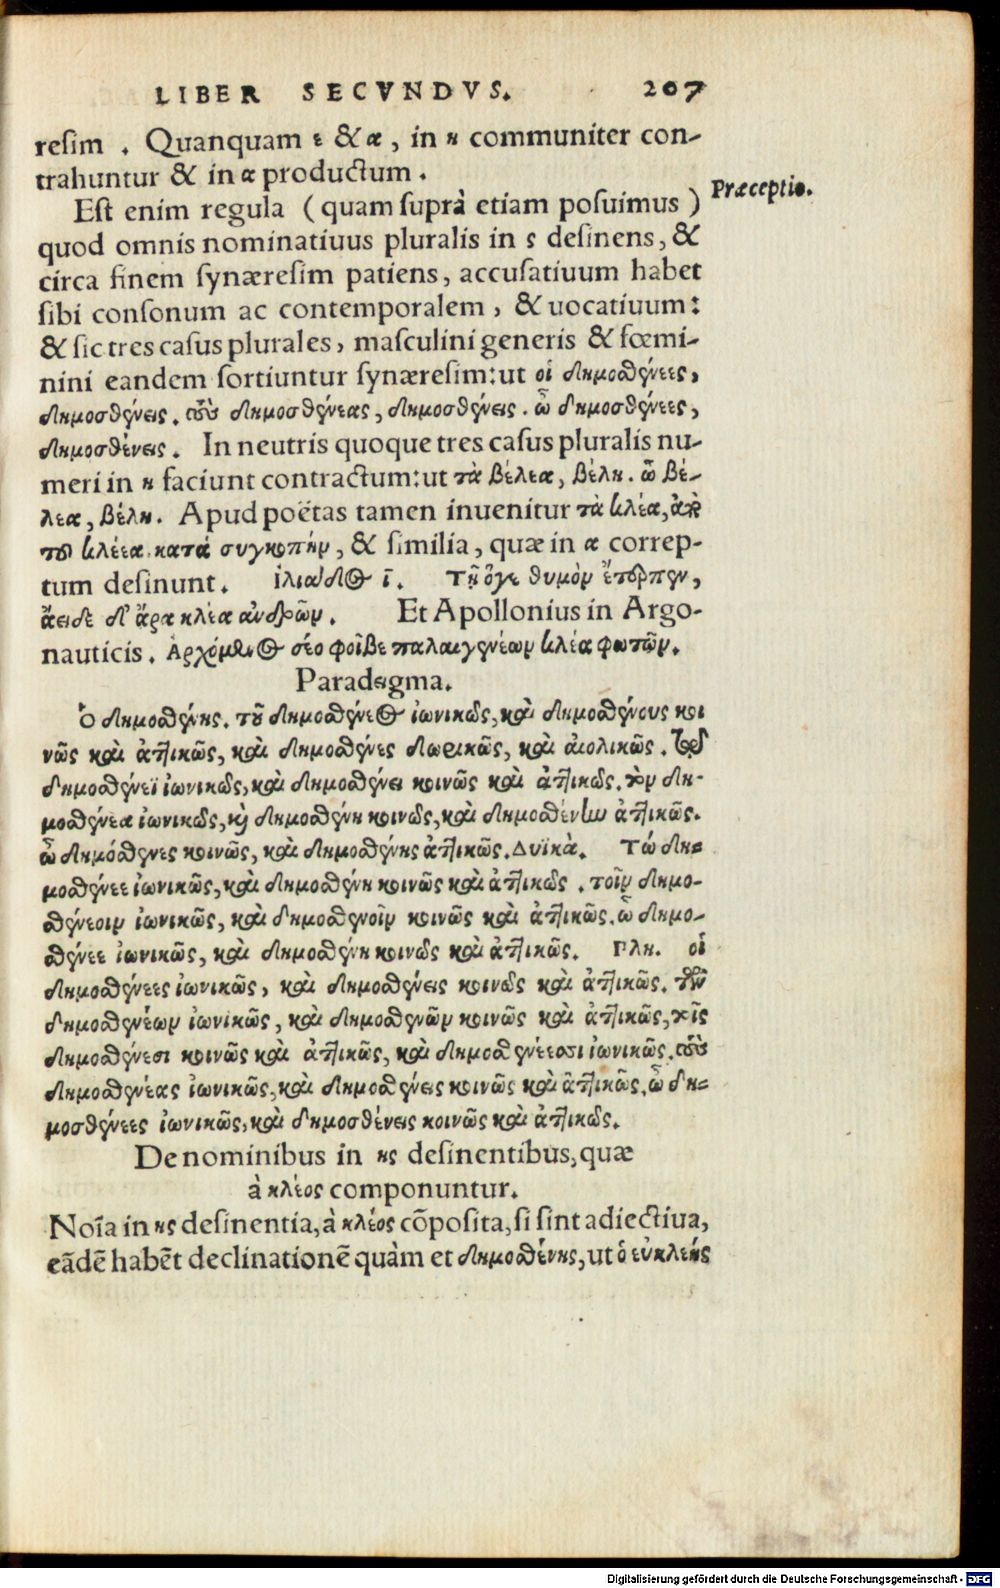 LIBER SECVNDVS. 207
resim . Quanquam ε & α, in η communiter con-
trahuntur & in α productum .
Est enim regula (quam suprà etiam posuimus)
Præceptio.
quod omnis nominatiuus pluralis in ς desinens, &
circa finem synæresim patiens, accusatiuum habet
sibi consonum ac contemporalem, & uocatiuum:
& sic tres casus plurales, masculini generis & fœmi-
nini eandem sortiuntur synæresim: ut οἱ δημοσθένεες,
δημοσθένεις. τοὺς δημοσθένεας, δημοσθένεις. ὦ δημοσθένεες,
δημοσθένεις. In neutris quoque tres casus pluralis nu-
meri in η faciunt contractum: ut τὰ βέλεα, βέλη. ὦ βέ-
λεα, βέλη. Apud poëtas tamen inuenitur τὰ κλέα, ἀπὸ
τοῦ κλέεα κατὰ συγκοπὴν, & similia, quæ in α correp-
tum desinunt. ἰλιάδος ῑ. Τῇ ὅγε θυμὸν ἔτερπεν,
ἄειδε δ' ἄρα κλέα ἀνδρῶν. Et Apollonius in Argo-
nauticis. Ἀρχόμενος σέο φοῖβε παλαιγενέων κλέα φωτῶν.
Paradegma.
Ὁ δημοσθένης. τοῦ δημοσθένεος ἰωνικῶς, καὶ δημοσθένους κοι
νῶς καὶ ἀττικῶς, καὶ δημοσθένες δωρικῶς, καὶ αἰολικῶς. τῷ
δημοσθένεϊ ἰωνικῶς, καὶ δημοσθένει κοινῶς καὶ ἀττικῶς. τὸν δη-
μοσθένεα ἰωνικῶς, καὶ δημοσθένη κοινῶς, καὶ δημοσθένην ἀττικῶς.
ὦ δημόσθενες κοινῶς, καὶ δημοσθένης ἀττικῶς. Δυϊκὰ. Τώ δη-
μοσθένεε ἰωνικῶς, καὶ δημοσθένη κοινῶς καὶ ἀττικῶς. τοῖν δημο-
σθενέοιν ἰωνικῶς, καὶ δημοσθενοῖν κοινῶς καὶ ἀττικῶς. ὦ δημο-
σθένεε ἰωνικῶς, καὶ δημοσθένη κοινῶς καὶ ἀττικῶς. Πλη. οἱ
δημοσθένεες ἰωνικῶς, καὶ δημοσθένεις κοινῶς καὶ ἀττικῶς. τῶν
δημοσθενέων ἰωνικῶς, καὶ δημοσθενῶν κοινῶς καὶ ἀττικῶς, τοῖς
δημοσθένεσι κοινῶς καὶ ἀττικῶς, καὶ δημοσθενέεσσι ἰωνικῶς. τοὺς
δημοσθένεας ἰωνικῶς, καὶ δημοσθένεις κοινῶς καὶ ἀττικῶς. ὦ δη-
μοσθένεες ἰωνικῶς, καὶ δημοσθένεις κοινῶς καὶ ἀττικῶς.
De nominibus in ης desinentibus, quæ
à κλέος componuntur.
Noīa in ης desinentia, à κλέος cōposita, si sint adiectiua,
eādē habēt declinationē quàm et δημοσθένης, ut ὁ εὐκλεής
Digitalisierung gefördert durch die Deutsche Forschungsgemeinschaft - DFG